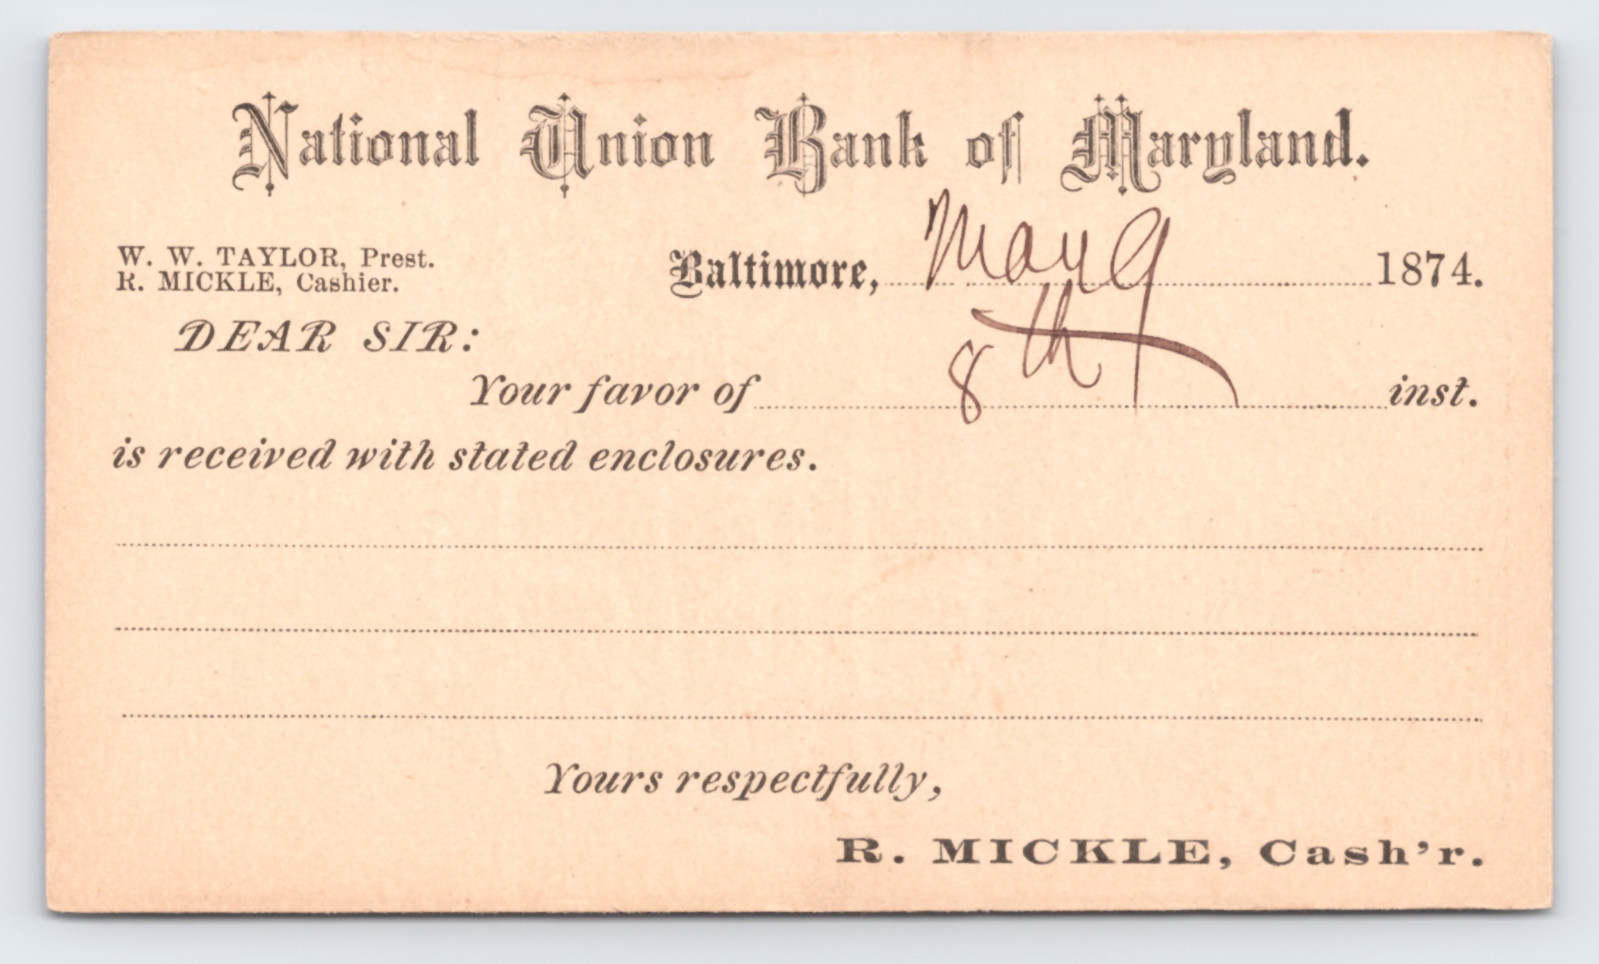 National Union Bank of Maryland.
W. W. TAYLOR, Prest.
R. MICKLE, Cashier.
Baltimore, May 9 1874.
DEAR SIR:
Your favor of 8th inst.
is received with stated enclosures.
Yours respectfully,
R. MICKLE, Cash'r.